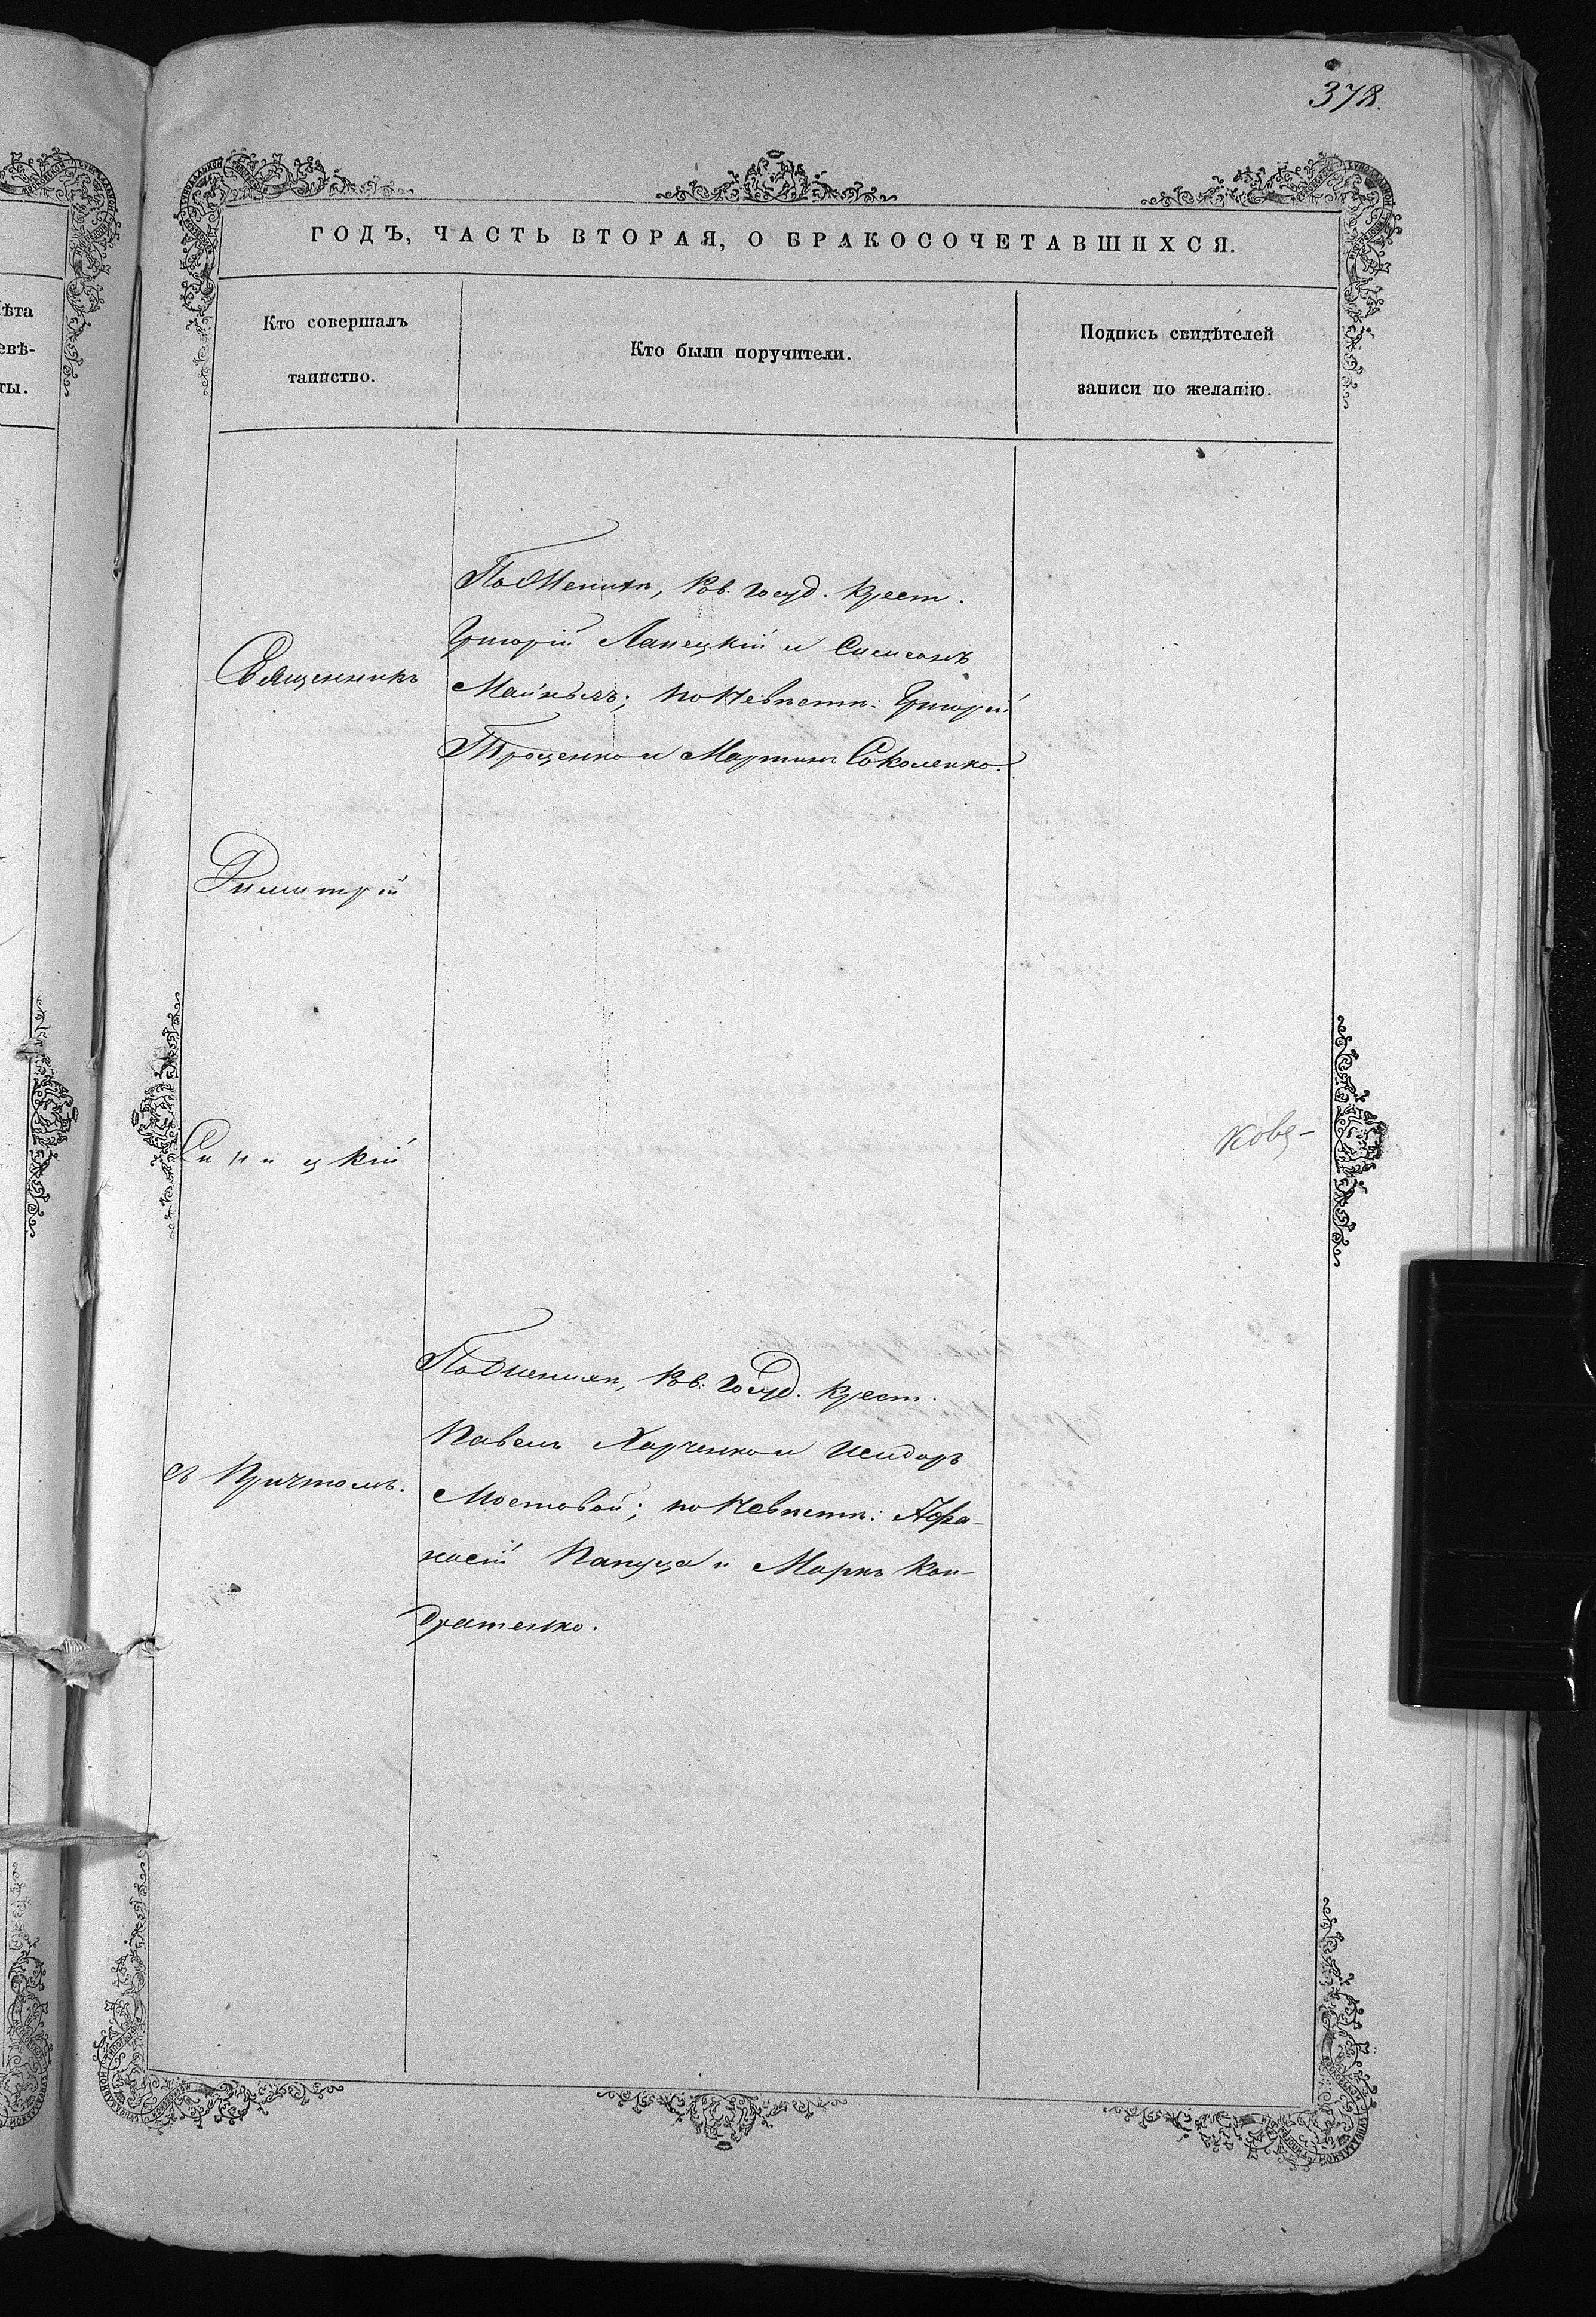 378.
ГОДЪ, ЧАСТЬ ВТОРАЯ, О БРАКОСОЧЕТАВШИХСЯ.
Кто совершалъ
таинство.
Кто были поручители.
Подпись свидѣтелей
записи по желанію.
По женихѣ, Ков. госуд. крест.
Григорій Лапецкій и Симеонъ
Священникъ
по невѣстѣ: Григорій
Троценко и Мартинъ Соколенко.
Димитрій
Синицкій
По женихѣ, Ков. Госуд. крест.
Павелъ Харченко и Исидоръ
съ Причтомъ.
Мостовой; по невѣстѣ: Афа-
насій Папуца и Маркъ Кон-
дратенко.
ѣта
евѣ-
ты.